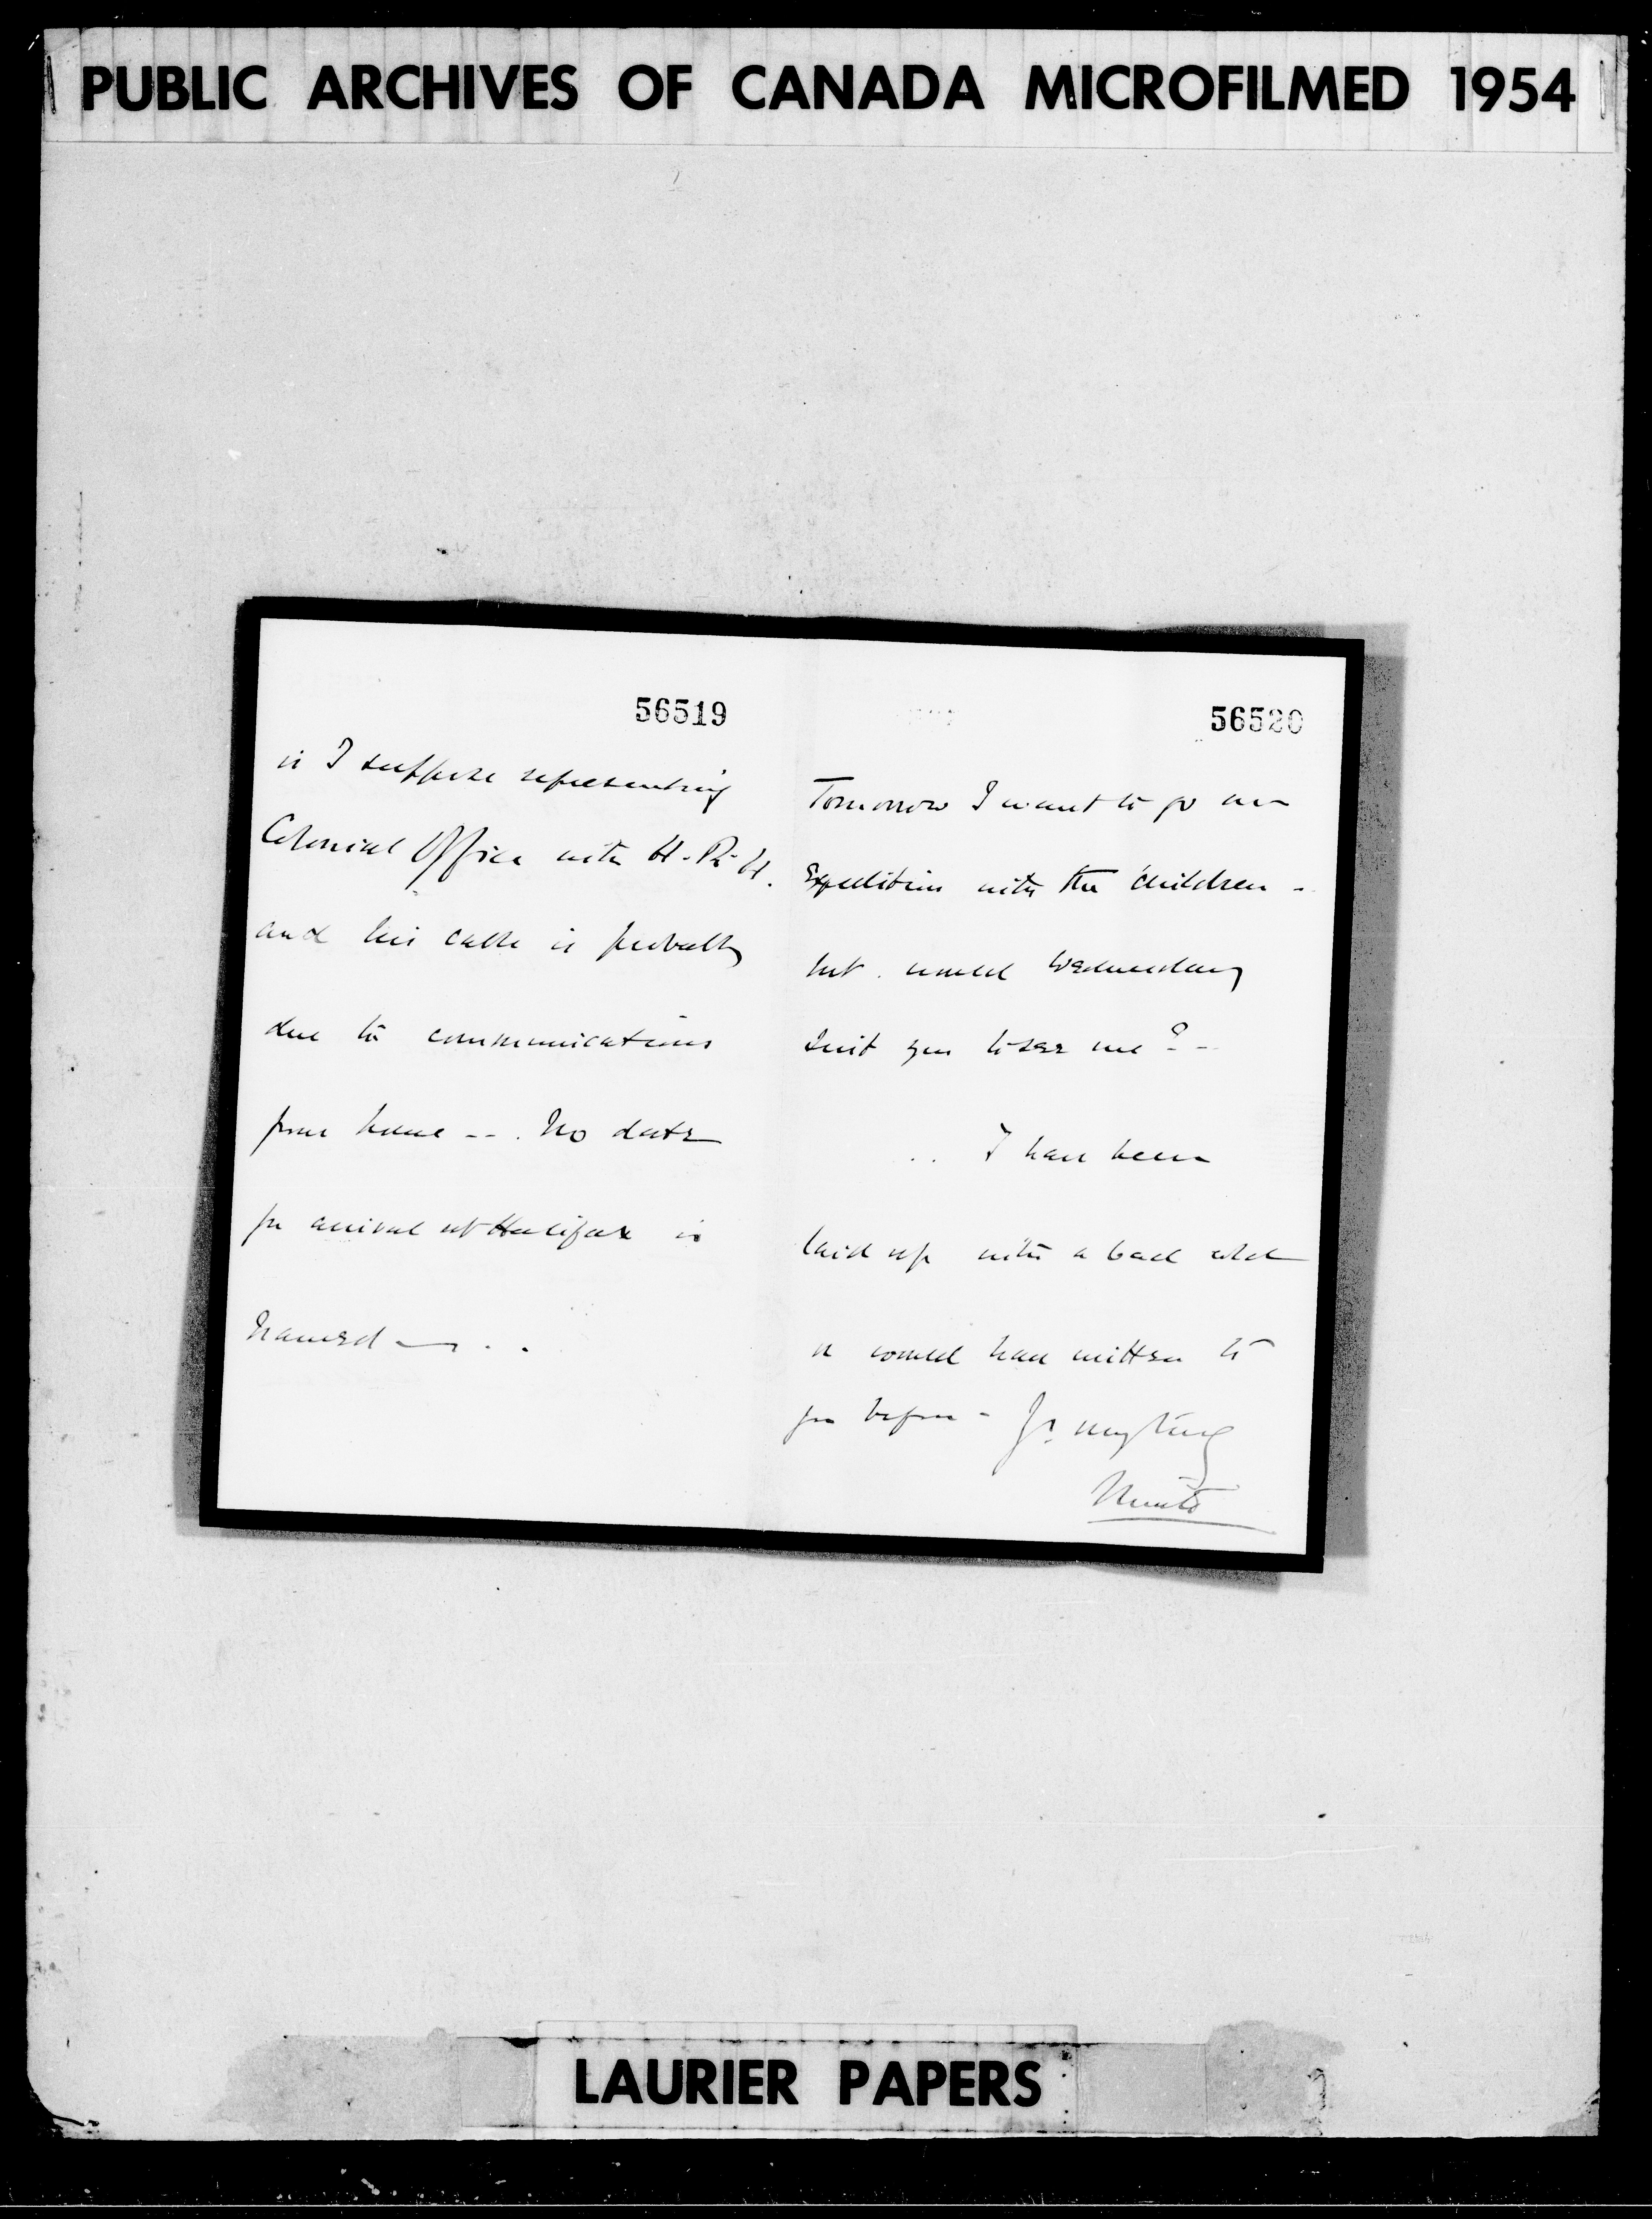 PUBLIC ARCHIVES OF CANADA MICROFILMED 1954
56519
is I suppose representing
Colonial Office with H.R.H.
and his cable is probably
due to communications
from home -- . No date
for arrival at Halifax is
named — . .
56520
Tomorrow I want to go on
Expedition with the children -
but would Wednesday
suit you to see me? -
.. I have been
laid up with a bad cold
or would have written to
you before - Yrs. very truly
Minto
LAURIER PAPERS